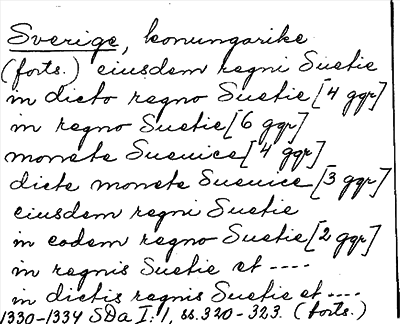 Sverige, konungarike
(forts.) eiusdem regni Suetie
in dicto regno Suetie [4 ggr]
in regno Suetie [6 ggr]
moneta Suenica [4 ggr]
dicte monete Suenice [3 ggr]
eiusdem regni Suetie
in eodem regno Suetie [2 ggr]
in regnis Suetie et ----
in dictis regnis Suetie et ----
1330-1334 SDa I: 1, ss. 320-323. (forts.)